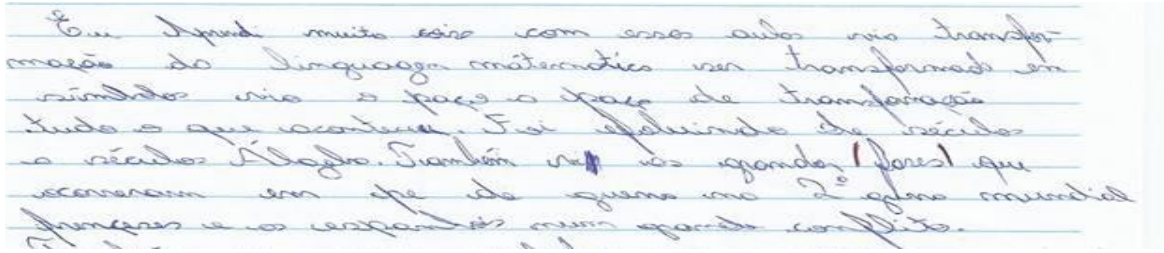 Eu Aprendi muita coisa com essas aulas via transfor-
mação da linguagem mátematica ser transformada em
simbolos via o paço a paço de transformação
tudo o que aconteceu. Foi efoluindo de séculos
a séculos Álagbra. Também as grandes (fores) que
ocorreram em de guerra na 2ª gerra mundial
franceses e os espanhóis num grande conflito.